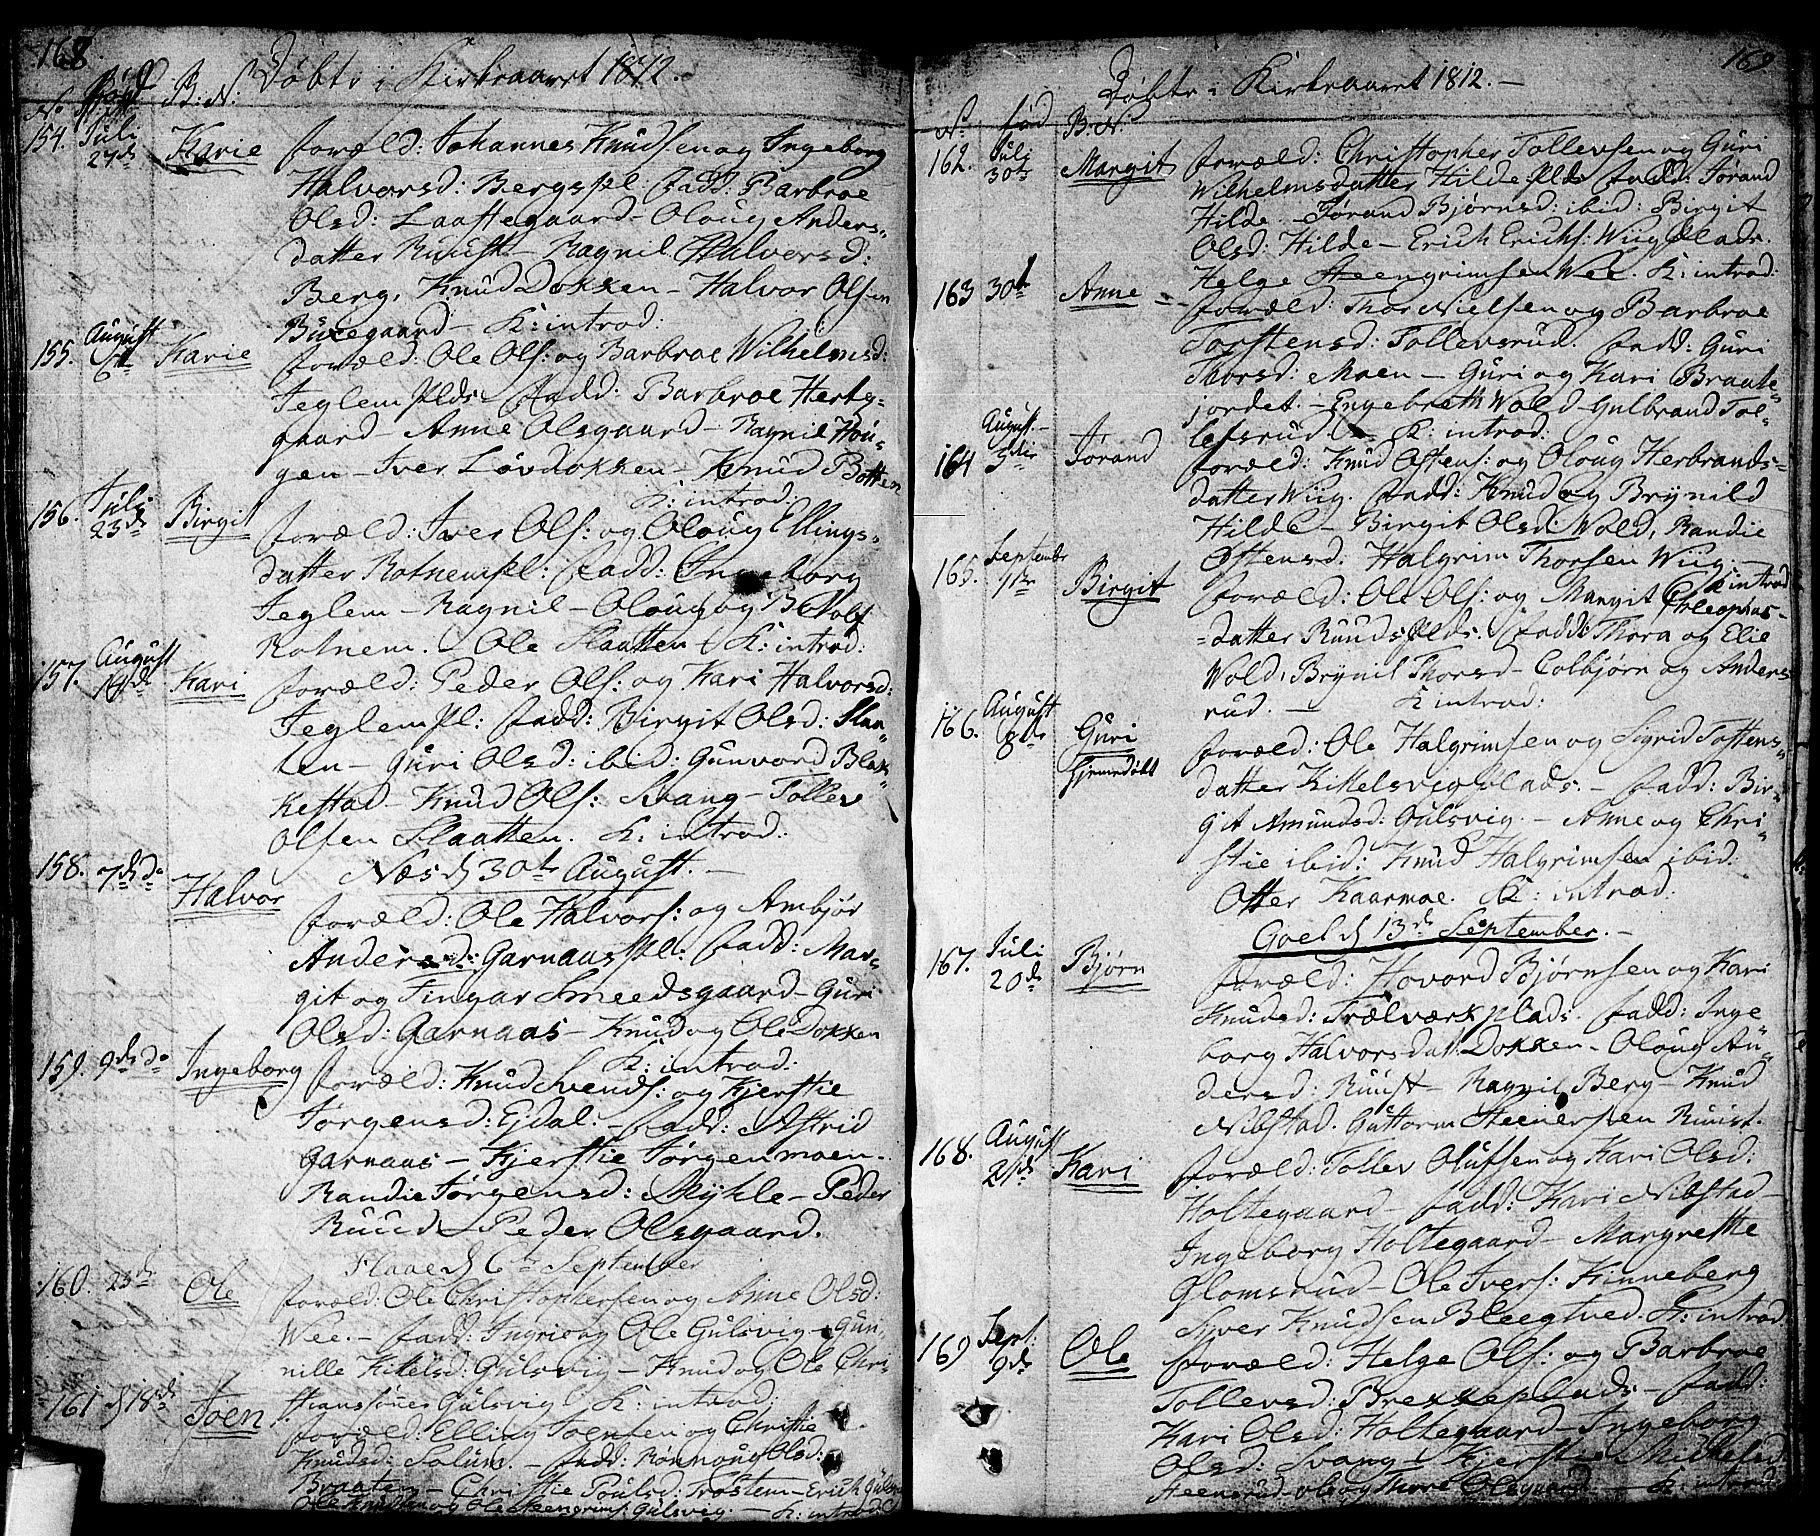 168.
Døbte i Kirkeaaret 1812.
No Fød B: N:
154. Juli 27de Karie foræld: Johannes Knudsen og Ingeborg
Halvorsd: Bergspl: fadd: Barbroe
Olsd: Laaftegaard – Oloug Anders-
datter Ruust – Ragnil Halvorsd:
Berg, Knud Dokken – Halvor Olsen
Buxegaard – K: introd:
155. August 6te Karie foræld: Ole Ols: og Barbroe Wilhelmsd:
Jeglem Plds – fadd: Barbroe Herby-
gaard – Anne Olsgaard – Ragnil Hou-
gen – Iver Løvdokken – Knud Botten
K: introd:
156. Juli 23de Birgit foræld: Iver Ols: og Oloug Ellings-
datter Rotnempl: fadd: Ingeborg
Jeglem – Ragnil – Oloug og
Rotnem. Ole Slaatten – K: introd:
157. August Kari foræld: Peder Ols: og Kari Halvorsd:
Jeglempl: fadd: Birgit Olsd: Slaa-
ten – Guri Olsd: ibid: Gunvord Blak-
kestad – Knud Ols: Svang – Tollev
Olsen Slaatten. K: introd:
Næs d 30te August. –
158. 7de do Halvor foræld: Ole Halvors: og Ambjør
Andersd: Garnaaspl: fadd: Mar-
git og Fingar Smeedsgaard – Guri
Olsd: Garnaas – Knud og Ole Dokken
K: introd:
159. 9de do Ingeborg foræld: Knud Svends: og Kjerstie
Jørgensd: Ejdal: – fadd: Astrid
Garnaas – Kjerstie Jørgenmoen.
Randie Jørgensd: Myhle – Peder
Ruud – Peder Olsgaard.
Flaae d 6te September
160. 23de Ole foræld: Ole Christophersen og Anne Olsd:
Wee. – fadd: Ingrie og Ole Gulsvig – Gun-
nille Kikelsd: Gulsvig – Knud og Ole Chri-
stianssønner Gulsvig K: introd:
161 d 18de Joen foræld: Elling Joensen og Christie
Knudsd: Solum. – fadd: Rønnoug Olsd:
Braaten – Christie Poulsd: Trostem – Erich Gulsvig
Ole Knudsen og Ole Steengrims: Gulsvig. – K: introd:
169
Døbte i Kirkeaaret 1812. –
No fød B. N:
162. Juli 30te Margit foræld: Christopher Tollevsen og Guri
Wilhelmsdatter Hilde Plds fadd: Jørand
Hilde. – Jørand Bjørnsd: ibid: Birgit
Olsd: Hilde – Erich Erichs: Wiig Plads.
Helge Steengrimsen Wee. K: introd:
163 30te Anne foræld: Thor Nielsen og Barbroe
Torstensd: Tollevsrud. fadd: Guri
Thorsd: Moen – Guri og Kari Braate-
jordet. – Engebreth Wold – Gulbrand Tol-
lefsrud. – K: introd:
164 August 5te Jørand foræld: Knud Ostens: og Oloug Herbrands-
datter Wiig. fadd: Knud og Brynild
Hilde – Birgit Olsd: Wold, Randie
Østensd: Halgrim Thorsen Wiig –
K introd
165. September 1te Birgit foræld: Ole Ols: og Margit Cleophas-
datter Ruuds Plds: fadd: Thora og Elie
Wold, Brynil Thorsd – Colbjørn og Anders
rud. – K introd:
166. August 8de Guri hjemedøbt foræld: Ole Halgrimsen og Sigrid Tostens-
datter Kikelsvigplads. – fadd: Bir-
git Amundsd: Gulsvig. – Anne og Chri-
stie ibid: Knud Halgrimsen ibid:
Otter Kaarmoe. K: introd:
Goel d 13de September. –
167. Juli 20de Bjørn foræld: Hovord Bjørnsen og Kari
Knudsd: Trælværkplads. fadd: Inge
borg Halvorsdat: Dokken – Oloug An-
dersd: Ruust – Ragnil Berg – Knud
Nibstad. Guttorm Steenersen Ruust.
168. August 21de Kari foræld: Tollev Olufsen og Kari Olsd:
Holtegaard – fadd: Kari Nibstad –
Ingeborg Holtegaard – Margrethe
Glomsrud – Ole Ivers: Finneberg
Syver Knudsen Bleegtved. K: introd
169 Sept: 9de Ole foræld: Helge Ols: og Barbroe
Tollevsd: Brekkeplads – fadd:
Kari Olsd: Holtegaard – Ingeborg
Olsd: Svang – Kjerstie Mikkelsd:
Steensrud – Ole og Thore Olsgaard – K: introd: